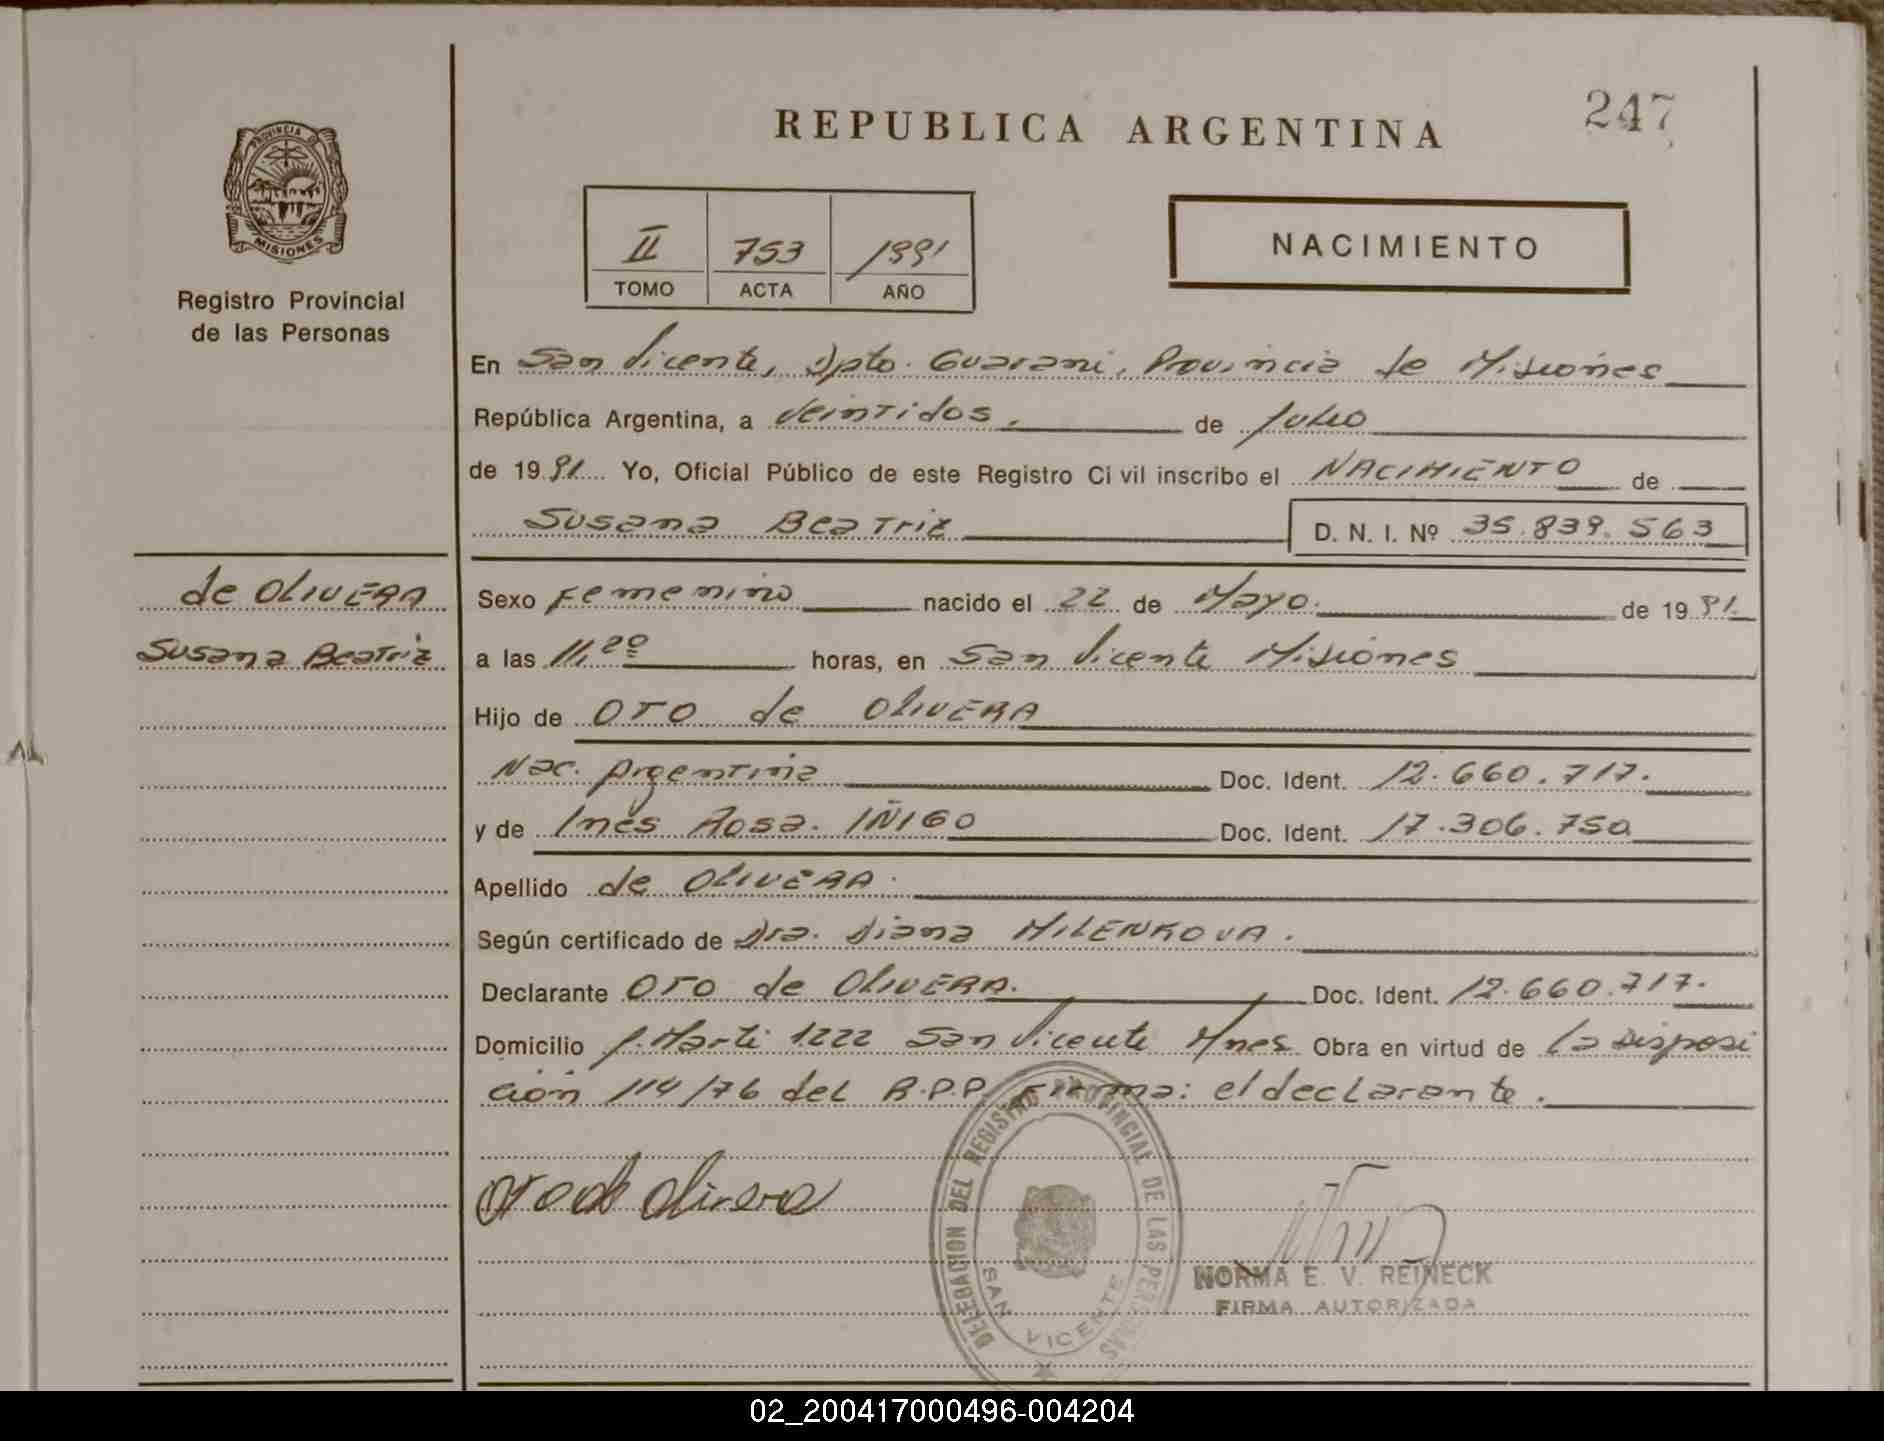 247
REPUBLICA ARGENTINA
PROVINCIA DE
MISIONES
Registro Provincial
de las Personas
II 753 1991
TOMO ACTA AÑO
NACIMIENTO
En San Vicente, Dpto. Guarani, Provincia de Misiones
República Argentina, a Veintidos, de Julio
de 1991 Yo, Oficial Público de este Registro Civil inscribo el NACIMIENTO de
Susana Beatriz D. N. I. Nº 35.839.563
de OLIVERA
Susana Beatriz
Sexo Femenino nacido el 22 de Mayo. de 1991.
a las 11,20 horas, en San Vicente Misiones
Hijo de OTO de OLIVERA
Nac. Argentina Doc. Ident. 12.660.717.
y de Inés Rosa. IÑIGO Doc. Ident. 17.306.750
Apellido de OLIVERA.
Según certificado de Dra. Diana MILENKOVA.
Declarante OTO de OLIVERA. Doc. Ident. 12.660.717.
Domicilio J. Marti 1222 San Vicente Mnes. Obra en virtud de la disposi
ción 114/76 del R.P.P. Firma: el declarante.
Oto de Olivera
DELEGACION DEL REGISTRO PROVINCIAL DE LAS PERSONAS
SAN VICENTE
NORMA E. V. REINECK
FIRMA AUTORIZADA
02_200417000496-004204